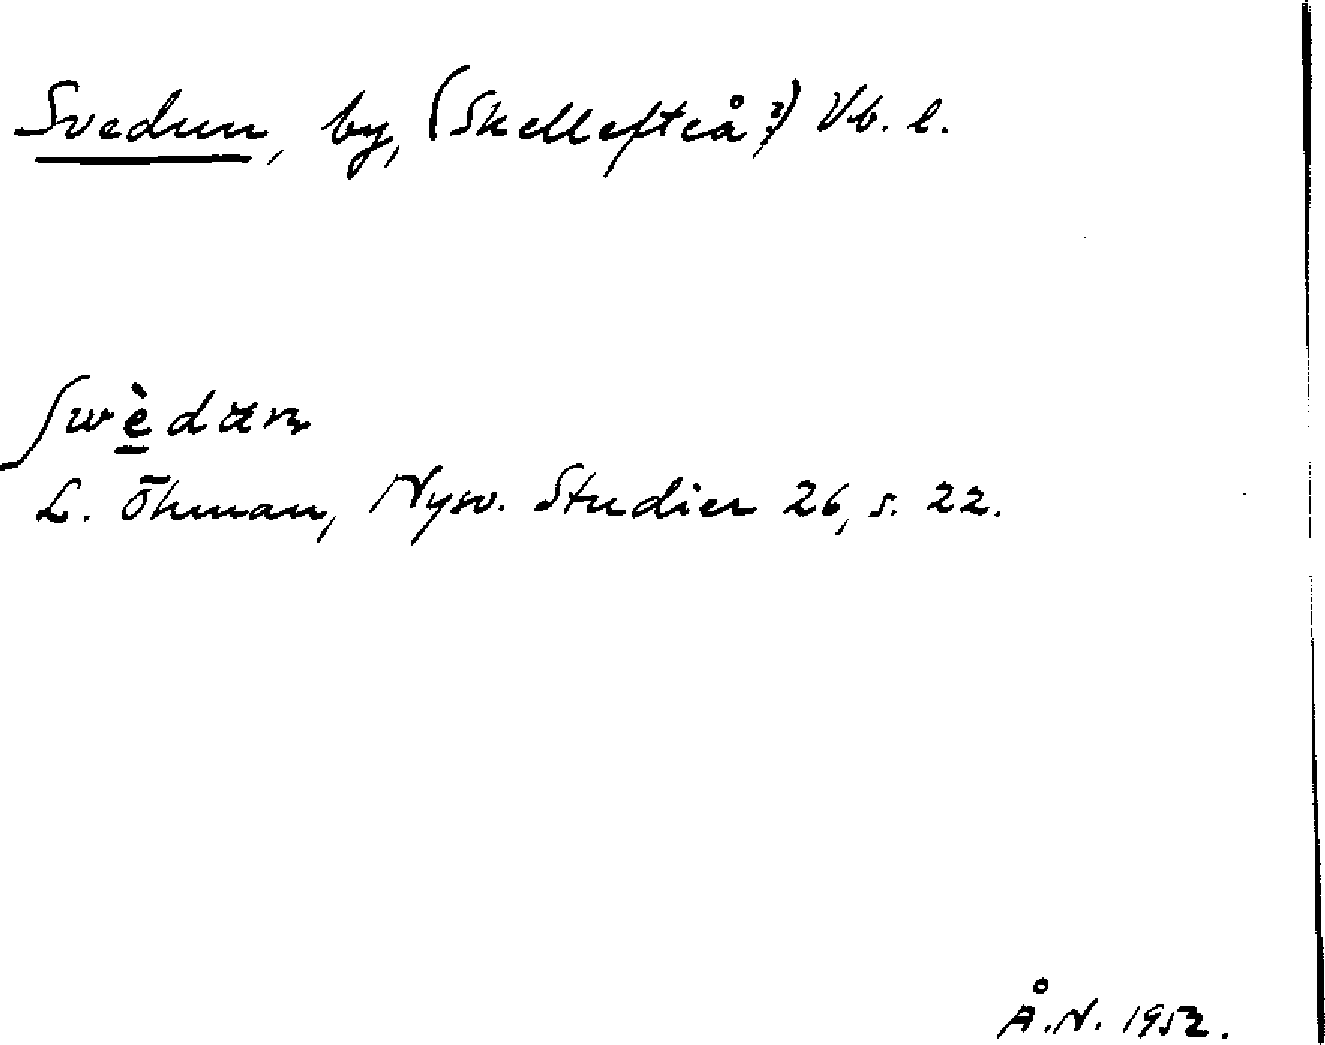 Svedun, by, (Skellefteå?) Vb. l.
Swèdan
L. Öhman, Nysv. Studier 26, s. 22.
Å.N. 1952.